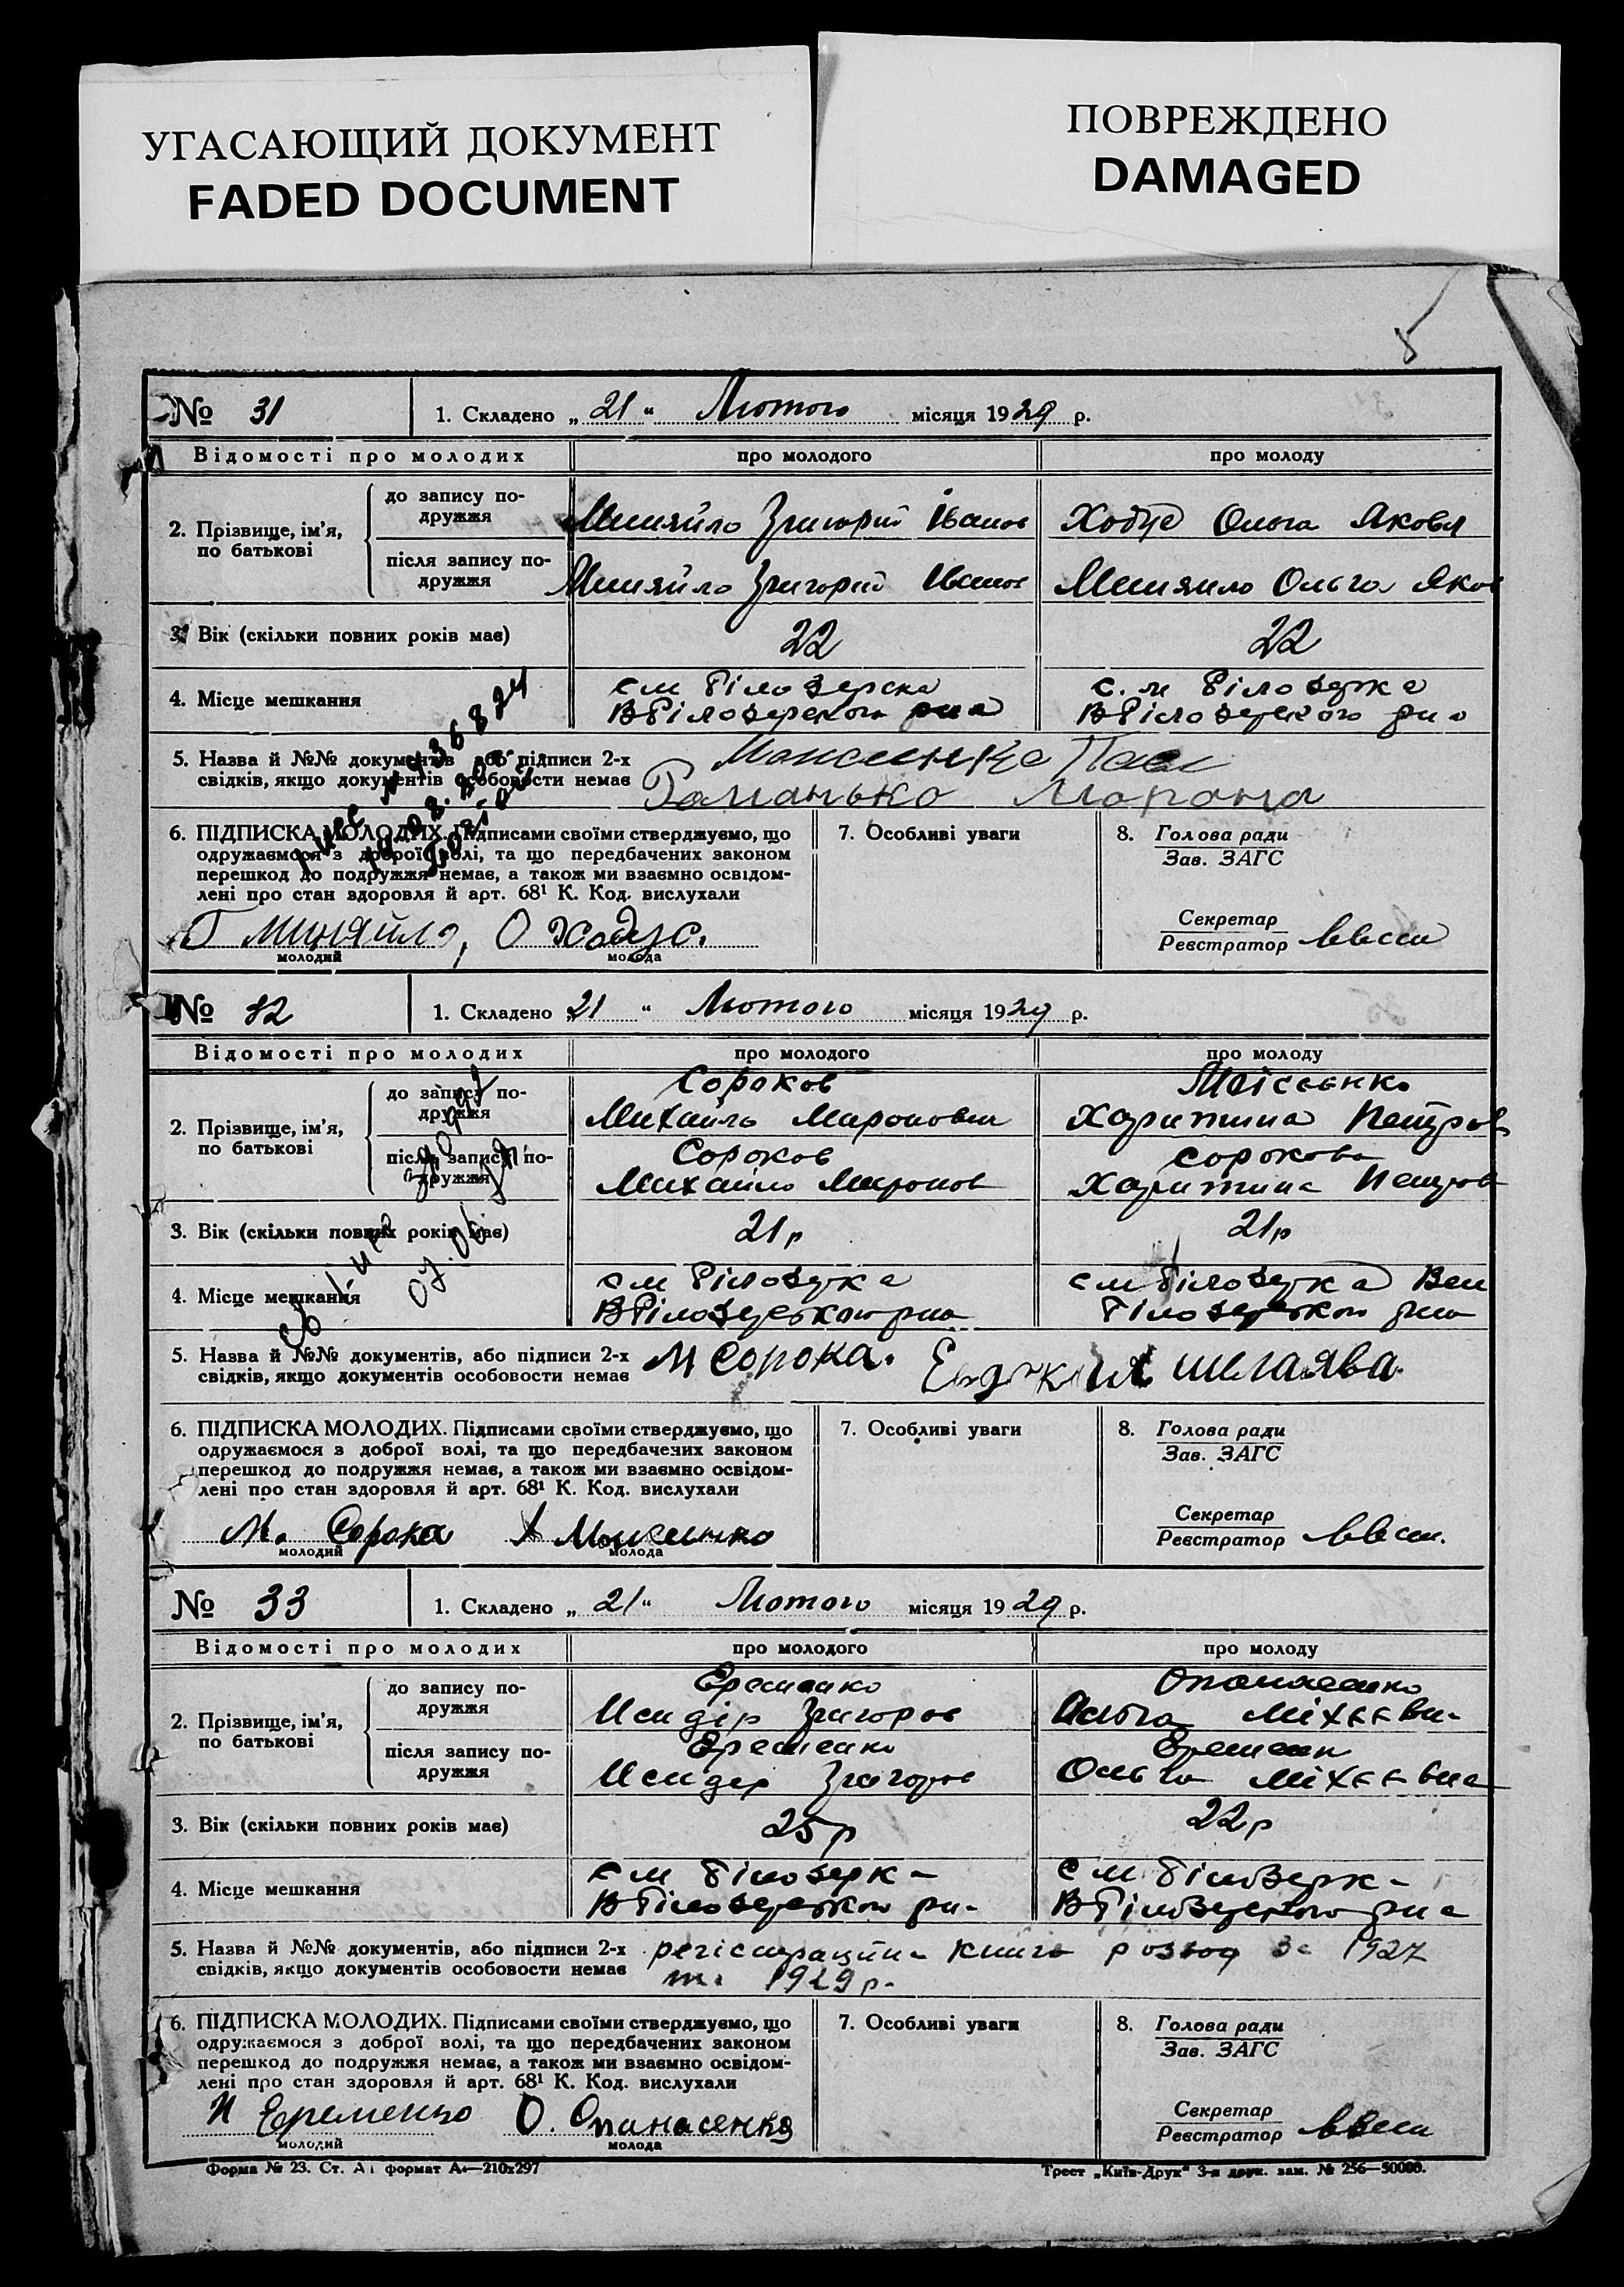 УГАСАЮЩИЙ ДОКУМЕНТ
FADED DOCUMENT
ПОВРЕЖДЕНО
DAMAGED
5
№ 31 1. Складено „ 21 “ Лютого місяця 1929 р.
Відомості про молодих про молодого про молоду
2. Прізвище, ім’я, по батькові
до запису подружжя Миняйло Григорий Іванов Ходус Ольга Яковл
після запису подружжя Миняйло Григорий Іванов Миняйло Ольга Яков
3. Вік (скільки повних років має) 22 22
4. Місце мешкання см Білозерка с. м Білозерка
ВБілозерского рна ВБілозерского рна
5. Назва й №№ документів, або підписи 2-х
свідків, якщо документів особовости немає
Романько Марона
6. ПІДПИСКА МОЛОДИХ. Підписами своїми стверджуємо, що
одружаємося з доброї волі, та що передбачених законом
перешкод до подружжя немає, а також ми взаємно освідом-
лені про стан здоровля й арт. 68¹ К. Код. вислухали
7. Особливі уваги
8. Голова ради
Зав. ЗАГС
Г Миняйло, О Ходус.
молодий молода
Секретар
Реєстратор
№ 32 1. Складено „ 21 “ Лютого місяця 1929 р.
Відомості про молодих про молодого про молоду
2. Прізвище, ім’я, по батькові
до запису подружжя Сороков Моісеенко
Михайло Миронович Харитина Петров
після запису подружжя Сороков Сорокова
Михайло Миронов Харитина Петров
3. Вік (скільки повних років має) 21р 21р
4. Місце мешкання см Білозерка см Білозерка Вел
ВБілозерского рна Білозерского рна
5. Назва й №№ документів, або підписи 2-х
свідків, якщо документів особовости немає
М Сорока. шелаява.
6. ПІДПИСКА МОЛОДИХ. Підписами своїми стверджуємо, що
одружаємося з доброї волі, та що передбачених законом
перешкод до подружжя немає, а також ми взаємно освідом-
лені про стан здоровля й арт. 68¹ К. Код. вислухали
7. Особливі уваги
8. Голова ради
Зав. ЗАГС
М. Сорока Моисеенко
молодий молода
Секретар
Реєстратор
№ 33 1. Складено „ 21 “ Лютого місяця 1929 р.
Відомості про молодих про молодого про молоду
2. Прізвище, ім’я, по батькові
до запису подружжя Еременко Опанасенко
Исидір Григоров Ольга Міхеевн-
після запису подружжя Еременко Еременк
Исидер Григоров Ольга Міхеевна
3. Вік (скільки повних років має) 25р 22р
4. Місце мешкання см Білозерк- см Білозерк-
ВБілозерского рн- ВБілозерского рна
5. Назва й №№ документів, або підписи 2-х
свідків, якщо документів особовости немає
регістраційна книга розвод за 1927
та 1929р.
6. ПІДПИСКА МОЛОДИХ. Підписами своїми стверджуємо, що
одружаємося з доброї волі, та що передбачених законом
перешкод до подружжя немає, а також ми взаємно освідом-
лені про стан здоровля й арт. 68¹ К. Код. вислухали
7. Особливі уваги
8. Голова ради
Зав. ЗАГС
И Еременко О. Опанасенко
молодий молода
Секретар
Реєстратор
Форма № 23. Ст. А₁ формат А₄—210x297
Трест „Київ-Друк“ 3-я друк. зам. № 256—50000.